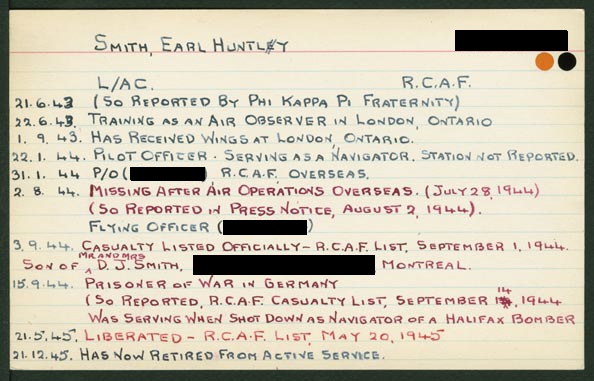 SMITH, EARL HUNTLEY
L/AC. R.C.A.F.
21.6.43 (SO REPORTED BY PHI KAPPA PI FRATERNITY)
22.6.43. TRAINING AS AN AIR OBSERVER IN LONDON, ONTARIO
1. 9. 43. HAS RECEIVED WINGS AT LONDON, ONTARIO.
22.1. 44. PILOT OFFICER. SERVING AS A NAVIGATOR. STATION NOT REPORTED.
31.1. 44 P/O ( ) R.C.A.F. OVERSEAS.
2. 8. 44. MISSING AFTER AIR OPERATIONS OVERSEAS. (JULY 28, 1944)
(SO REPORTED IN PRESS NOTICE, AUGUST 2, 1944).
FLYING OFFICER ( )
3.9.44. CASUALTY LISTED OFFICIALLY - R.C.A.F. LIST, SEPTEMBER 1, 1944.
SON OF MR AND MRS D. J. SMITH, MONTREAL.
15.9.44. PRISONER OF WAR IN GERMANY
(SO REPORTED, R.C.A.F. CASUALTY LIST, SEPTEMBER 14, 1944
WAS SERVING WHEN SHOT DOWN AS NAVIGATOR OF A HALIFAX BOMBER
21.5.45. LIBERATED - R.C.A.F. LIST, MAY 20, 1945
21.12.45. HAS NOW RETIRED FROM ACTIVE SERVICE.